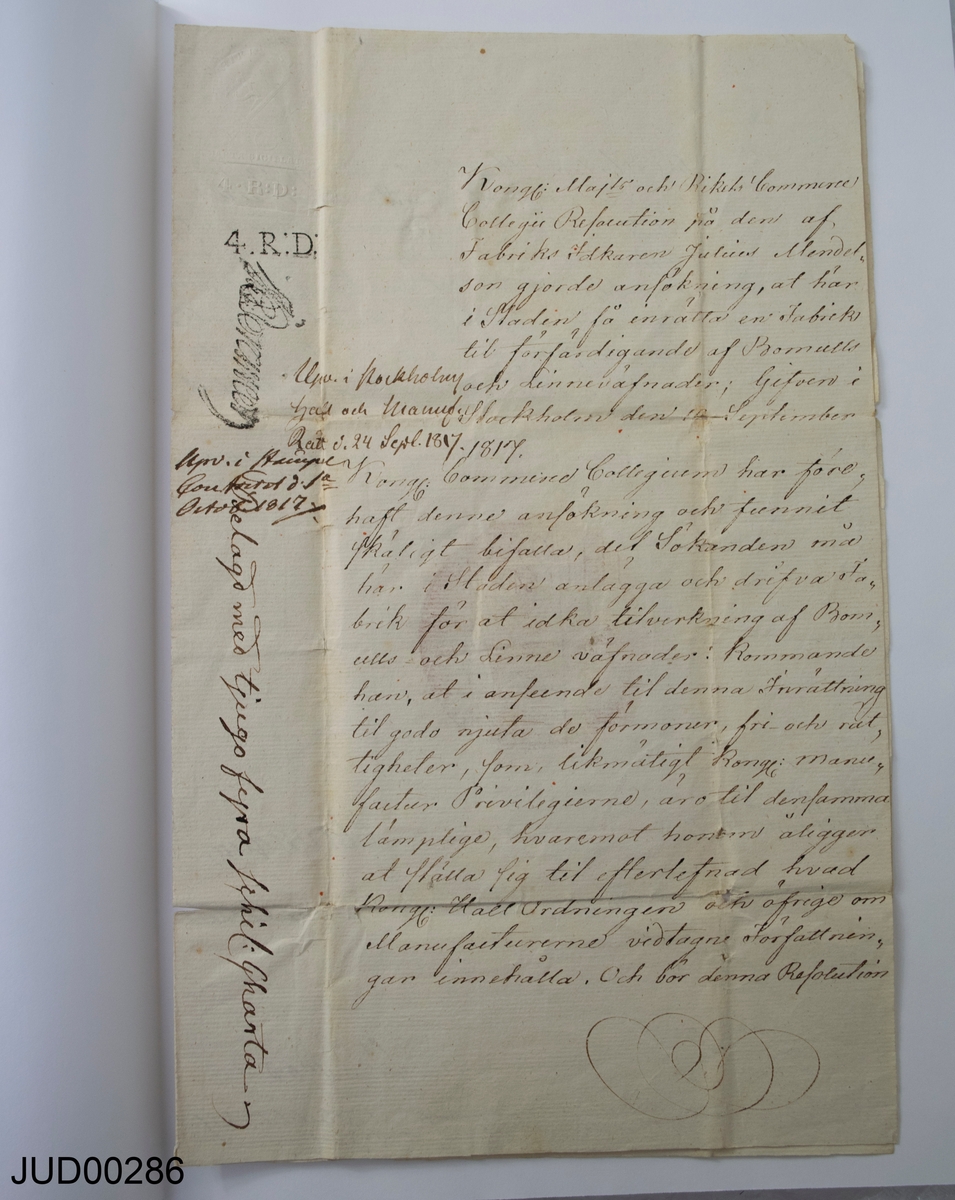 4.R:D:
4.R:D:
Kongl: Majts och Rikets Commerce
Collegii Resolution på den af
Fabriks Idkaren Julius Mendel-
son gjorde ansökning, at här
i Staden få inrätta en Fabrik
til förfärdigande af Bomulls
och Linneväfnader; Gifven i
Stockholm den September
1817.
Upv. i Stockholms
Hall och Manuf:
Rätt d. 24 Sept. 1817.
Upv. i Stämpel
Contoiret d. 1a
October 1817.
Belagd med tjugo fyra schil: Charta
Kongl: Commerce Collegium har före-
haft denne ansökning och funnit
skäligt bifalla, det Sökanden må
här i Staden anlägga och drifva Fa-
brik för at idka tilverkning af Bom-
ulls- och Linne väfnader: Kommande
han, at i anseende til denna Inrättning
til godo njuta de förmoner, fri- och rät-
tigheter, som, likmätigt Kongl: manu-
factur Privilegierne, äro til densamma
lämplige, hvaremot honom åligger
at ställa sig til efterlefnad hvad
Kongl: Hall Ordningen och öfrige om
Manufacturerne vidtagne Författnin-
gar innehålla. Och bör denna Resolution
JUD00286